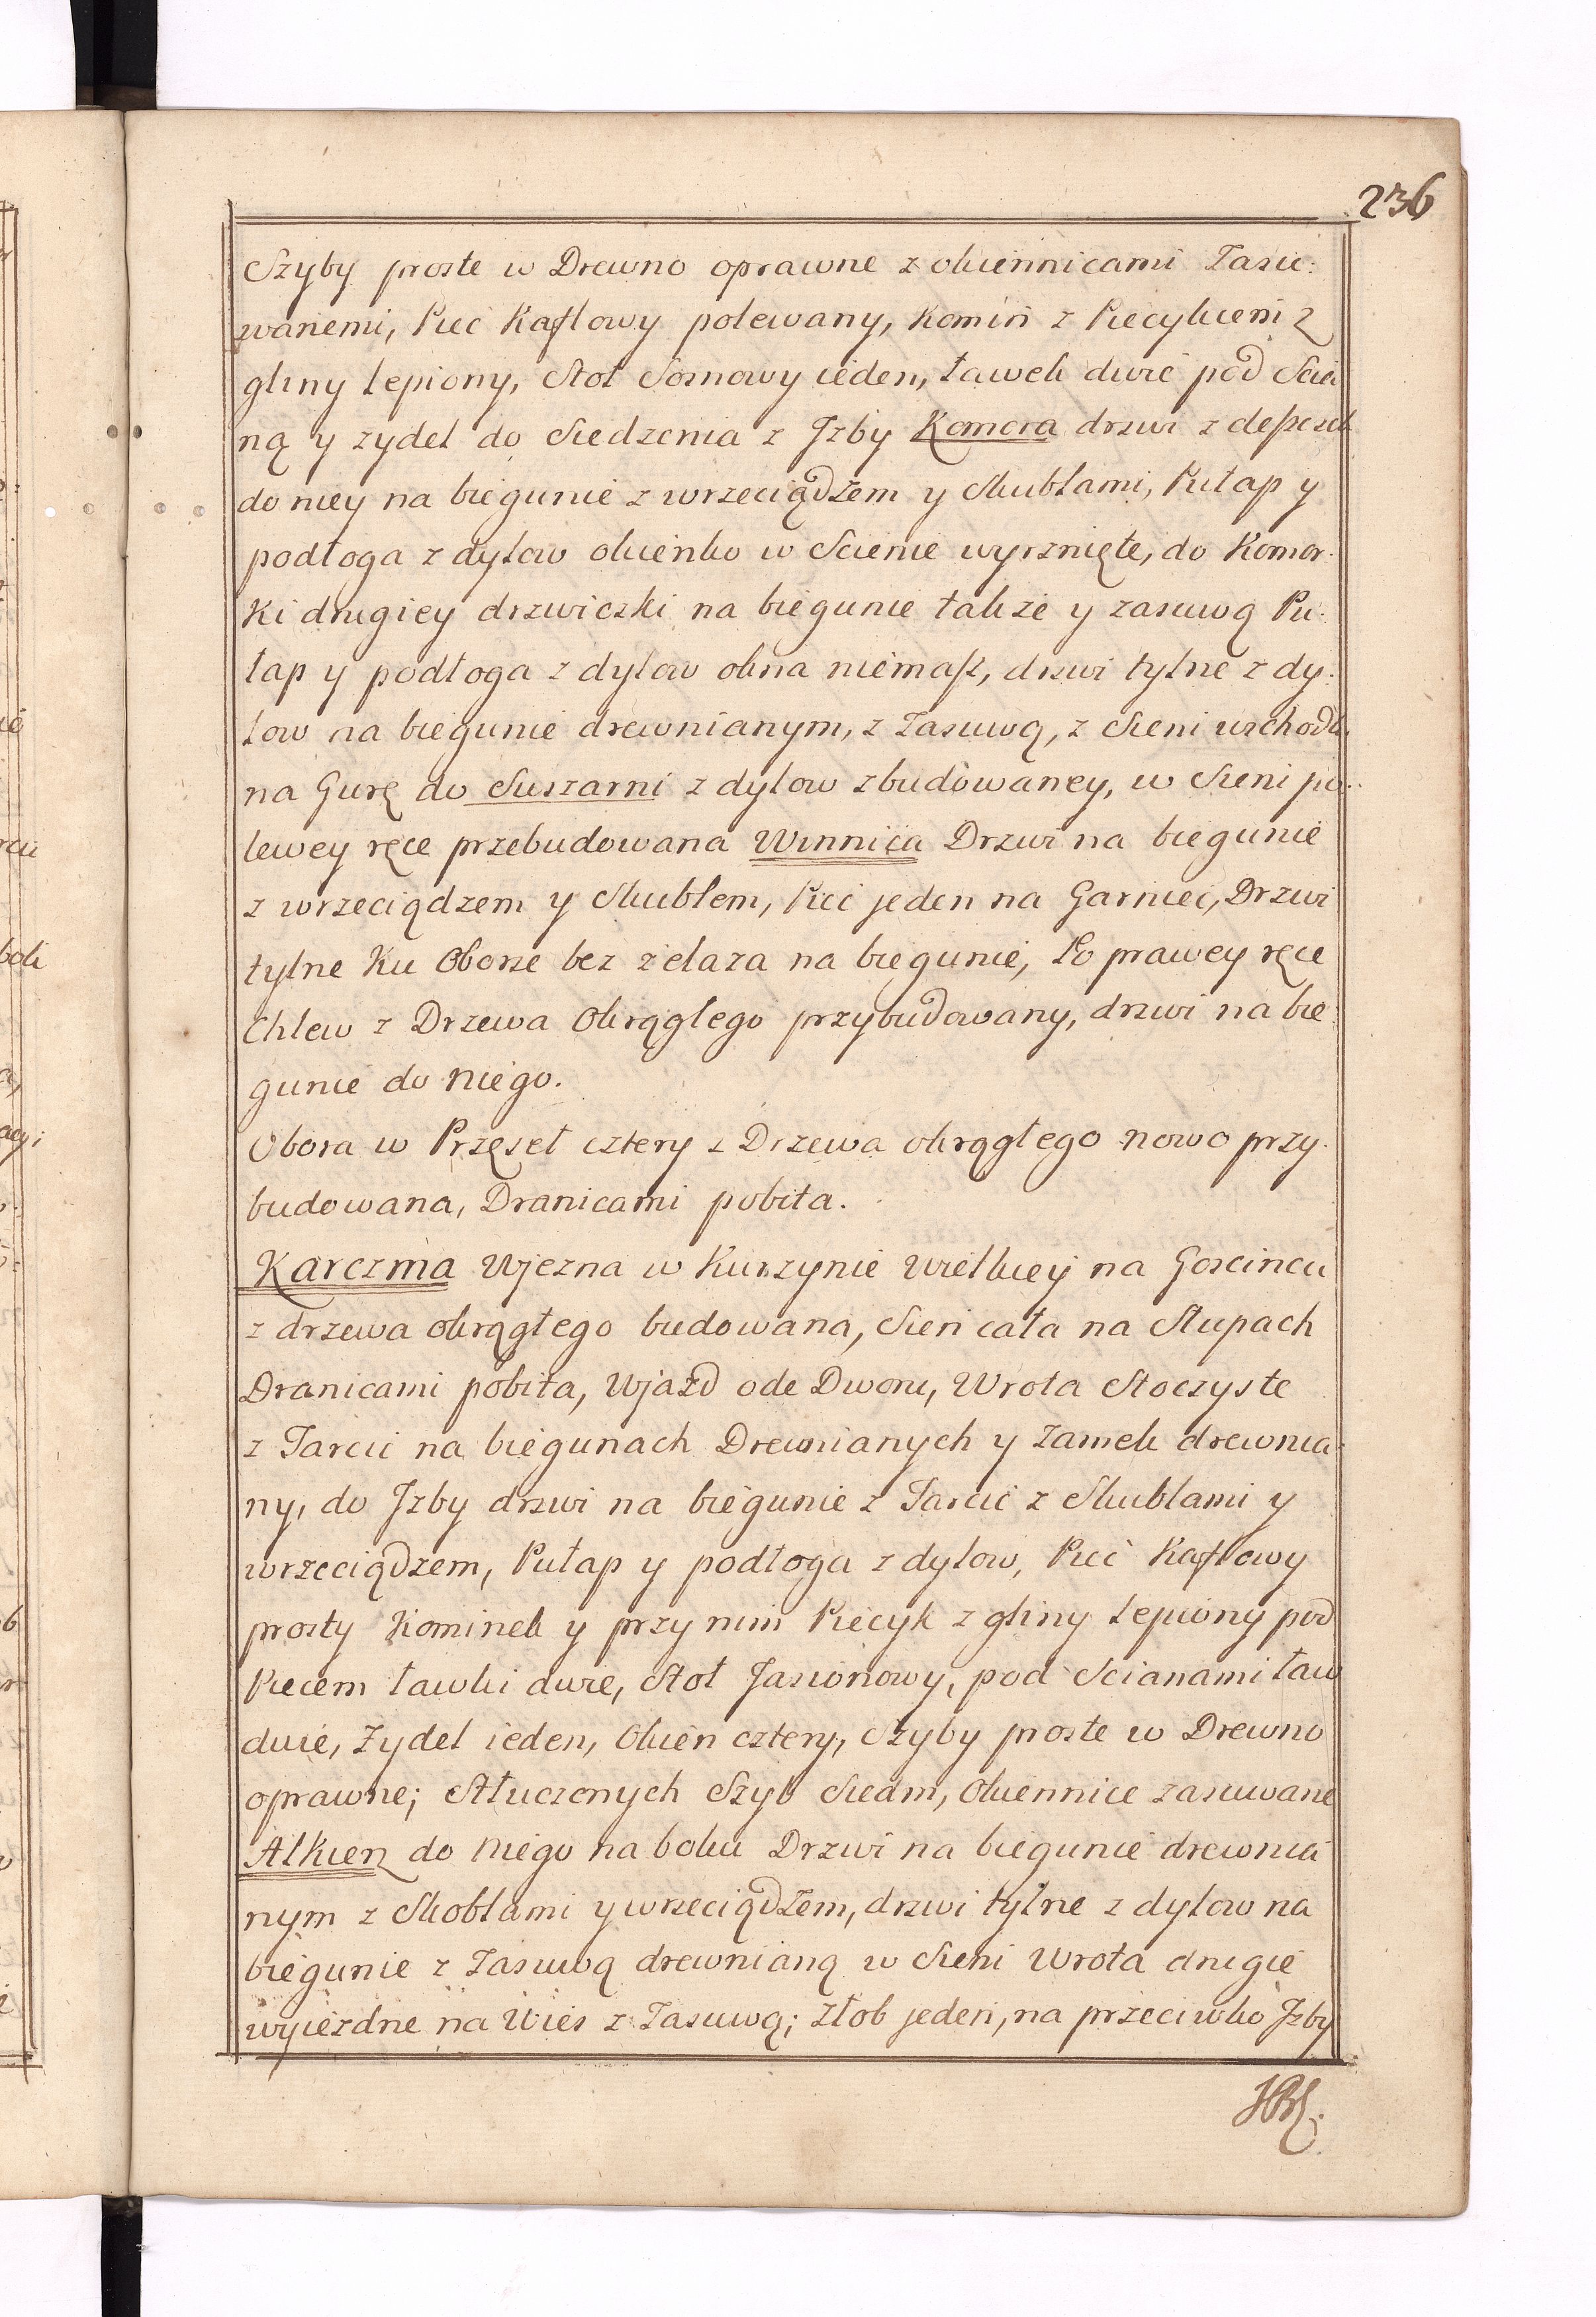 236
Szyby proste w Drewno oprawne z okiennicami Zasu:
wanemi, Piec Kaflowy polewany, Komin z Piecykiem z
gliny lepiony, Stoł Sosnowy ieden, Ławek dwie pod Scia
ną y zydel do Siedzenia z Jzby Komora drzwi z deszczek
do niey na biegunie z wrzeciądzem y Skublami, Pułap y
podłoga z dylow okienko w Scienie wyrznięte, do Komor:
Ki drugiey drzwiczki na biegunie takze y zasuwą Pu:
łap y podłoga z dylow okna niemasz, drzwi tylne z dy:
low na biegunie drewnianym, z Zasuwą, z Sieni wschody
na Gurę do Suszarni z dylow zbudowaney, w Sieni po
lewey ręce przebudowana Winnica Drzwi na biegunie
z wrzeciądzem y Skublem, Piec jeden na Garniec, Drzwi
tylne Ku Oborze bez zelaza na biegunie, Po prawey ręce
Chlew z Drzewa Okrągłego przybudowany, drzwi na bie:
gunie do niego.
Obora w Przęseł cztery z Drzewa okrągłego nowo przy:
budowana, Dranicami pobita.
Karczma Wjezna w Kurzynie Wielkiey na Goscincu
z drzewa okrągłego budowana, Sien cała na Słupach
Dranicami pobita, Wjazd ode Dworu, Wrota Stoczyste
z Tarcic na biegunach Drewnianych y Zamek drewnia:
ny, do Jzby drzwi na biegunie z Tarcic z Skublami y
wrzeciądzem, Pułap y podłoga z dylow, Piec Kaflowy
prosty Kominek y przy nim Piecyk z gliny lepiony pod
Piecem ławki dwie, Stoł Jasionowy, pod Scianami ław
dwie, Zydel ieden, Okien cztery, Szyby proste w Drewno
oprawne; Stłuczonych Szyb Siedm, Okiennice zasuwane
Alkierz do niego na boku Drzwi na biegunie drewnia
nym z Skoblami y wrzeciądzem, drzwi tylne z dylow na
biegunie z Zasuwą drewnianą w Sieni Wrota drugie
wyiezdne na Wies z Zasuwą; Złob jeden, na przeciwko Jzby